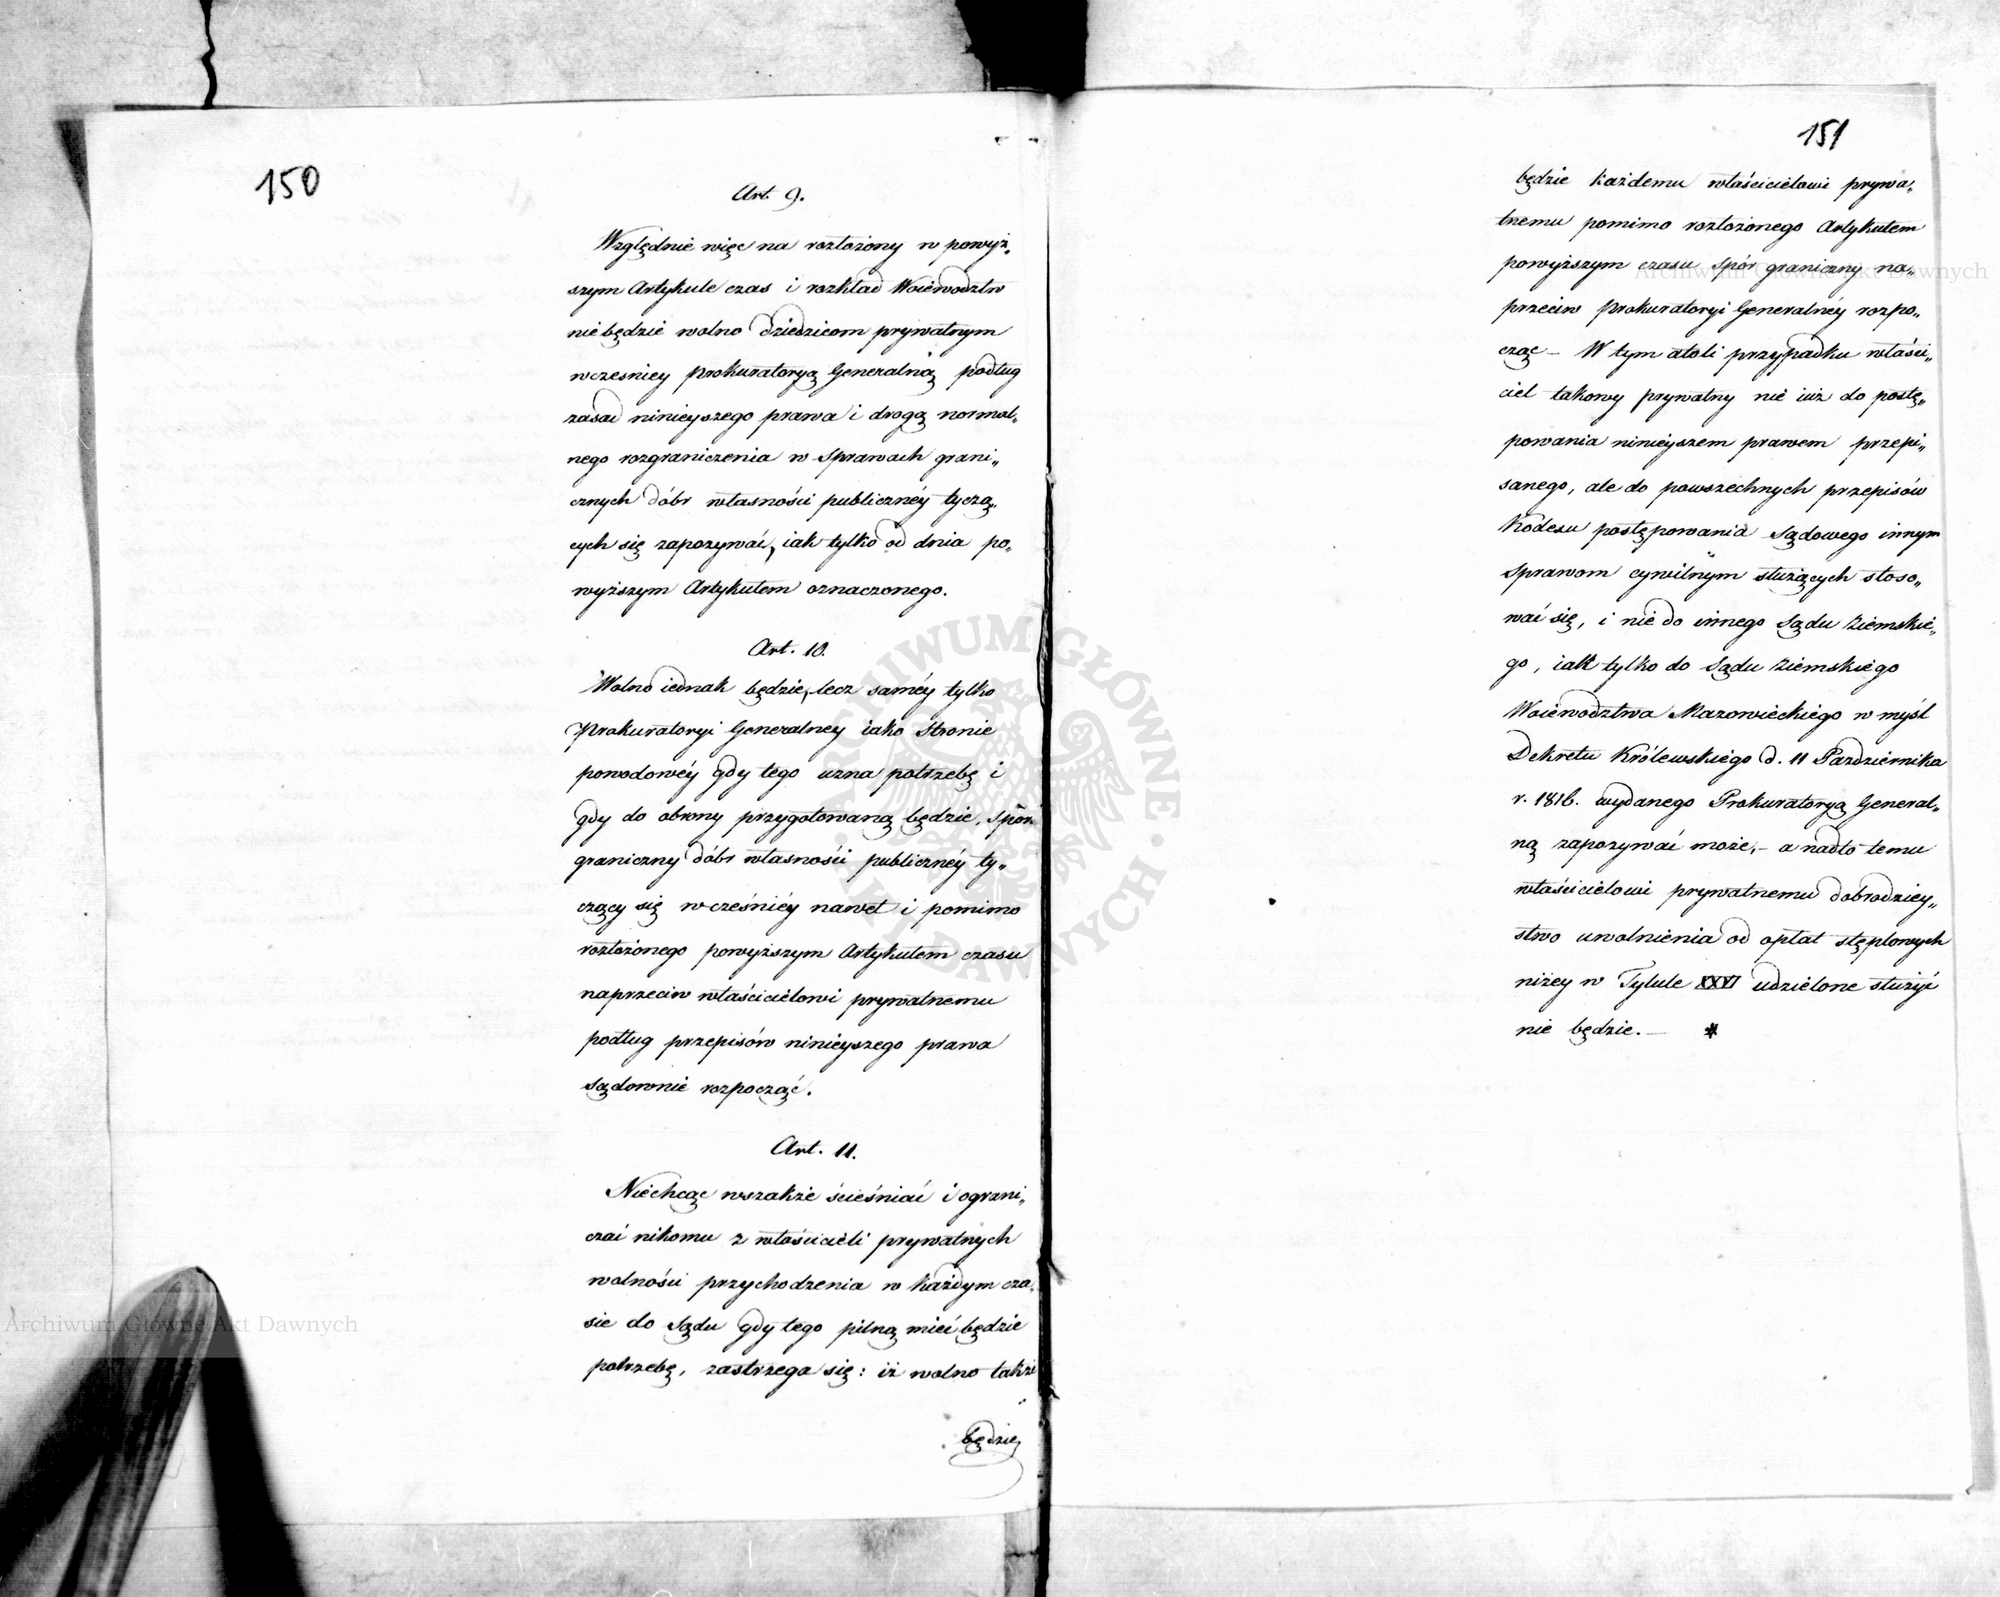 150
Art. 9.
Względnie więc na rozłożony w powyż„
szym Artykule czas i rozkład Woiewodztw
niebędzie wolno dziedzicom prywatnym
wczesniey Prokuratoryą Generalną podług
zasad ninieyszego prawa i drogą normal„
nego rozgraniczenia w Sprawach grani„
cznych dóbr własności publicznéy tyczą„
cych się zapozywać, iak tylko od dnia po„
wyższym Artykułem oznaczonego.
Art. 10.
Wolno iednak będzie, lecz saméy tylko
Prokuratoryi Generalney iako Stronie
powodowéy gdy tego uzna potrzebę i
gdy do obrony przygotowaną będzie, Spór
graniczny dóbr własności publicznéy ty„
czący się wcześniéy nawet i pomimo
rozłożonego powyższym Artykułem czasu
naprzeciw właścicielowi prywatnemu
podług przepisów ninieyszego prawa
sądownie rozpocząć.
Art. 11.
Niechcąc wszakże ścieśniać i ograni„
czać nikomu z właścicieli prywatnych
wolności przychodzenia w każdym cza„
sie do Sądu gdy tego pilną mieć będzie
potrzebę, zastrzega się: iż wolno także
będzie
151
będzie każdemu właścicielowi prywa„
tnemu pomimo rozłożonego Artykułem
powyższym czasu Spór graniczny na„
przeciw Prokuratoryi Generalnéy rozpo„
cząć – W tym atoli przypadku właści„
ciel takowy prywatny nie iuż do postę„
powania ninieyszem prawem przepi„
sanego, ale do powszechnych przepisów
Kodexu postępowania Sądowego innym
Sprawom cywilnym służących stoso„
wać się, i nie do innego Sądu Ziemskie„
go, iak tylko do Sądu Ziemskiego
Woiewodztwa Mazowieckiego w myśl
Dekretu Królewskiego d. 11 Pazdziernika
r. 1816. wydanego Prokuratoryą General„
ną zapozywać może, – a nadto temu
właścicielowi prywatnemu dobrodziey„
stwo uwolnienia od opłat stęplowych
niżey w Tytule XXVI udzielone służyć
nie będzie. – *
Archiwum Główne Akt Dawnych
Archiwum Główne Akt Dawnych
ARCHIWUM GŁÓWNE AKT DAWNYCH